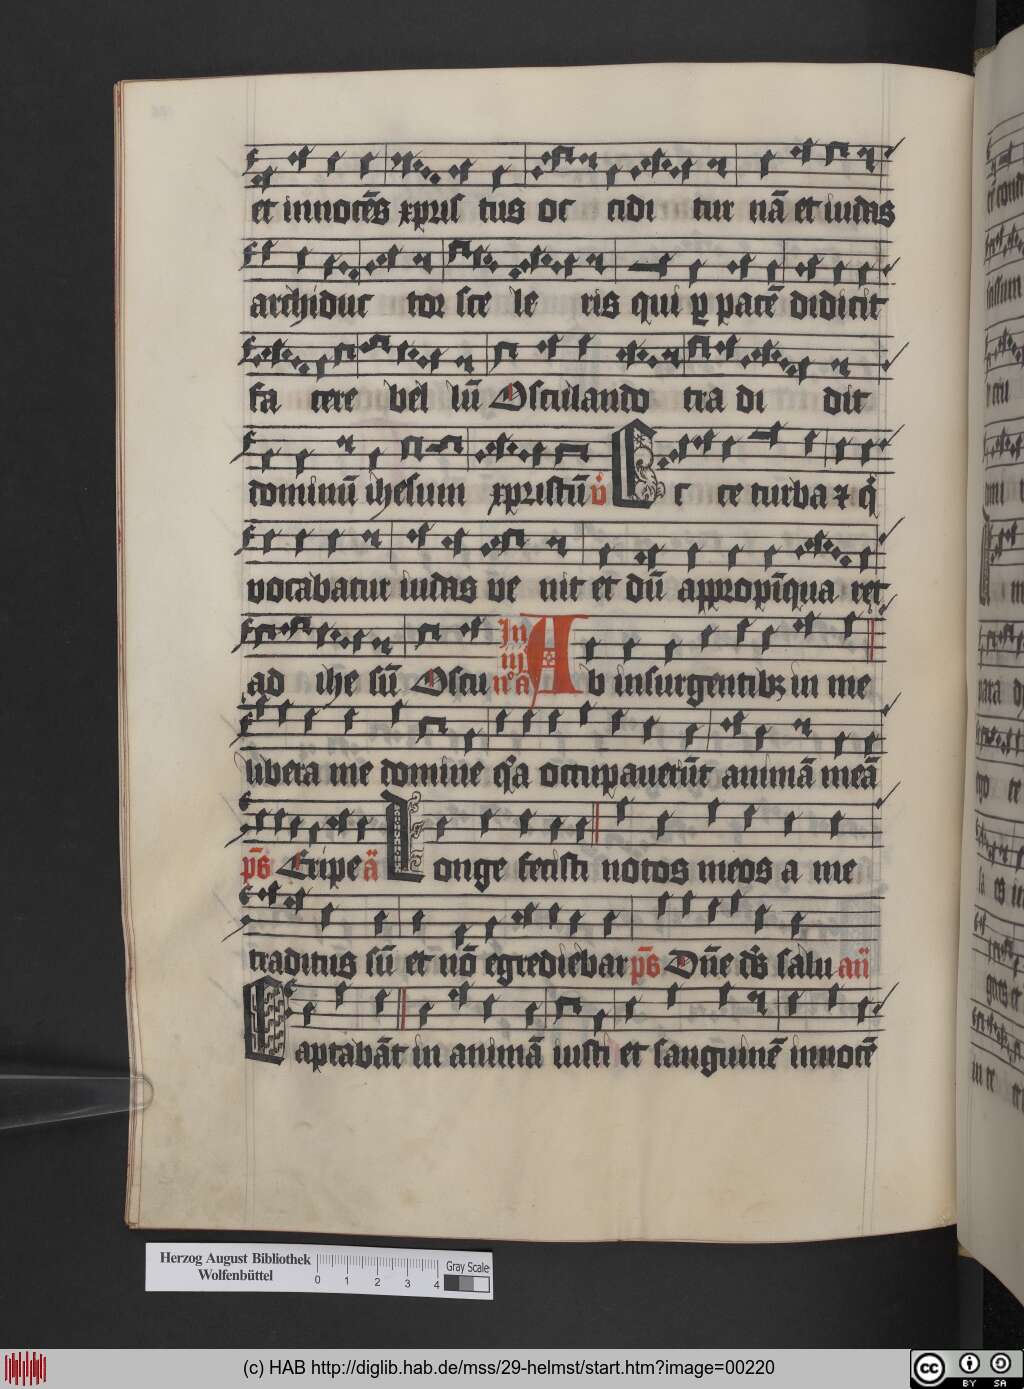 et innocēs xpris tus oc cidi tur nā et iudas
archiduc tor sce le ris qui ꝑ pacē didicit
fa cere bel lū Osculando tra di dit
dominū ihesum xpristū Ec ce turba ⁊ q̇
vocabatur iudas ve nit et dū appropīqua ret
ad ihe sū Oscu In iij n°a Ab insurgentibꝫ in me
libera me domine q̇a occupauerūt animā meā
ps Eripe a Longe fecisti notos meos a me
traditus sū et nō egrediebar ps Dūe ds salu an
Captabāt in animā iusti et sanguinē innocē
Herzog August Bibliothek
Wolfenbüttel
0 1 2 3 4
Gray Scale
(c) HAB http://diglib.hab.de/mss/29-helmst/start.htm?image=00220
cc BY SA